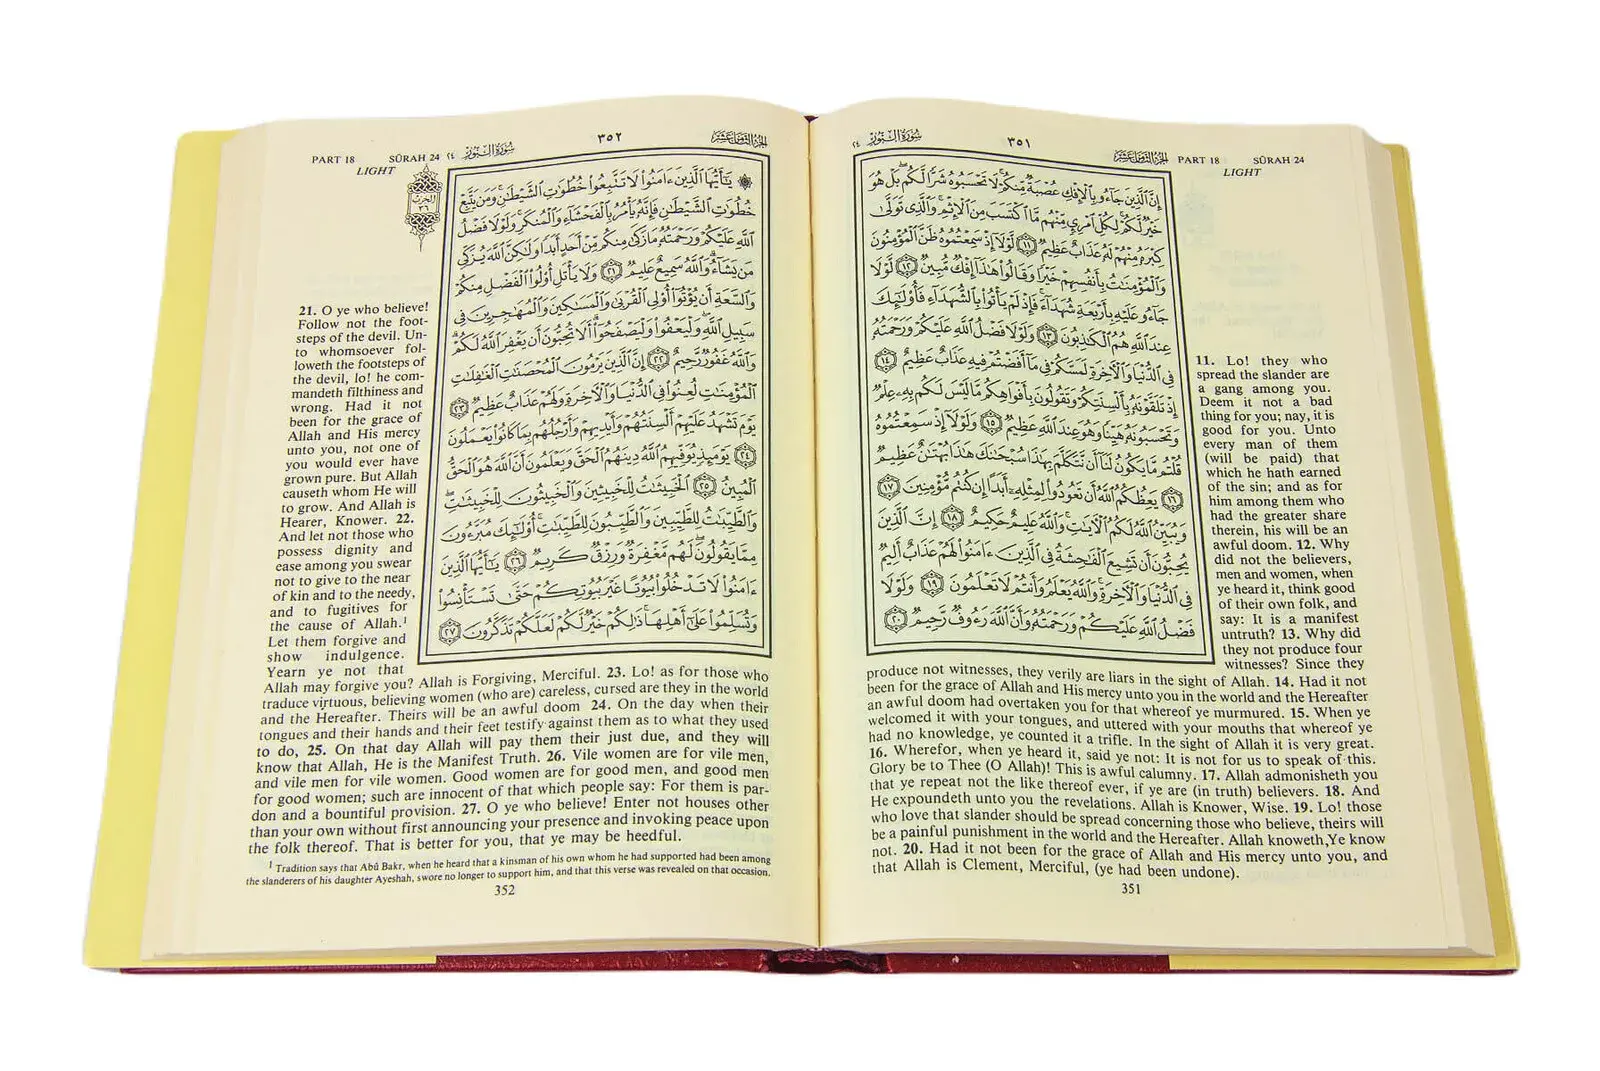 سُورَةُ النُّورِ ٢٤
٣٥١
الجزء الثامن عشر
PART 18 SŪRAH 24
LIGHT
إِنَّ ٱلَّذِينَ جَآءُو بِٱلْإِفْكِ عُصْبَةٌ مِّنكُمْ ۚ لَا تَحْسَبُوهُ شَرًّا لَّكُم ۖ بَلْ هُوَ
خَيْرٌ لَّكُمْ ۚ لِكُلِّ ٱمْرِئٍ مِّنْهُم مَّا ٱكْتَسَبَ مِنَ ٱلْإِثْمِ ۚ وَٱلَّذِى تَوَلَّىٰ
كِبْرَهُۥ مِنْهُمْ لَهُۥ عَذَابٌ عَظِيمٌ ١١ لَّوْلَآ إِذْ سَمِعْتُمُوهُ ظَنَّ ٱلْمُؤْمِنُونَ
وَٱلْمُؤْمِنَٰتُ بِأَنفُسِهِمْ خَيْرًا وَقَالُوا۟ هَٰذَآ إِفْكٌ مُّبِينٌ ١٢ لَّوْلَا
جَآءُو عَلَيْهِ بِأَرْبَعَةِ شُهَدَآءَ ۚ فَإِذْ لَمْ يَأْتُوا۟ بِٱلشُّهَدَآءِ فَأُو۟لَٰٓئِكَ
عِندَ ٱللَّهِ هُمُ ٱلْكَٰذِبُونَ ١٣ وَلَوْلَا فَضْلُ ٱللَّهِ عَلَيْكُمْ وَرَحْمَتُهُۥ
فِى ٱلدُّنْيَا وَٱلْءَاخِرَةِ لَمَسَّكُمْ فِى مَآ أَفَضْتُمْ فِيهِ عَذَابٌ عَظِيمٌ ١٤
إِذْ تَلَقَّوْنَهُۥ بِأَلْسِنَتِكُمْ وَتَقُولُونَ بِأَفْوَاهِكُم مَّا لَيْسَ لَكُم بِهِۦ عِلْمٌ
وَتَحْسَبُونَهُۥ هَيِّنًا وَهُوَ عِندَ ٱللَّهِ عَظِيمٌ ١٥ وَلَوْلَآ إِذْ سَمِعْتُمُوهُ
قُلْتُم مَّا يَكُونُ لَنَآ أَن نَّتَكَلَّمَ بِهَٰذَا سُبْحَٰنَكَ هَٰذَا بُهْتَٰنٌ عَظِيمٌ
١٦ يَعِظُكُمُ ٱللَّهُ أَن تَعُودُوا۟ لِمِثْلِهِۦٓ أَبَدًا إِن كُنتُم مُّؤْمِنِينَ ١٧
وَيُبَيِّنُ ٱللَّهُ لَكُمُ ٱلْءَايَٰتِ ۚ وَٱللَّهُ عَلِيمٌ حَكِيمٌ ١٨ إِنَّ ٱلَّذِينَ
يُحِبُّونَ أَن تَشِيعَ ٱلْفَٰحِشَةُ فِى ٱلَّذِينَ ءَامَنُوا۟ لَهُمْ عَذَابٌ أَلِيمٌ
فِى ٱلدُّنْيَا وَٱلْءَاخِرَةِ ۚ وَٱللَّهُ يَعْلَمُ وَأَنتُمْ لَا تَعْلَمُونَ ١٩ وَلَوْلَا
فَضْلُ ٱللَّهِ عَلَيْكُمْ وَرَحْمَتُهُۥ وَأَنَّ ٱللَّهَ رَءُوفٌ رَّحِيمٌ ٢٠
11. Lo! they who
spread the slander are
a gang among you.
Deem it not a bad
thing for you; nay, it is
good for you. Unto
every man of them
(will be paid) that
which he hath earned
of the sin; and as for
him among them who
had the greater share
therein, his will be an
awful doom. 12. Why
did not the believers,
men and women, when
ye heard it, think good
of their own folk, and
say: It is a manifest
untruth? 13. Why did
they not produce four
witnesses? Since they
produce not witnesses, they verily are liars in the sight of Allah. 14. Had it not
been for the grace of Allah and His mercy unto you in the world and the Hereafter
an awful doom had overtaken you for that whereof ye murmured. 15. When ye
welcomed it with your tongues, and uttered with your mouths that whereof ye
had no knowledge, ye counted it a trifle. In the sight of Allah it is very great.
16. Wherefor, when ye heard it, said ye not: It is not for us to speak of this.
Glory be to Thee (O Allah)! This is awful calumny. 17. Allah admonisheth you
that ye repeat not the like thereof ever, if ye are (in truth) believers. 18. And
He expoundeth unto you the revelations. Allah is Knower, Wise. 19. Lo! those
who love that slander should be spread concerning those who believe, theirs will
be a painful punishment in the world and the Hereafter. Allah knoweth,Ye know
not. 20. Had it not been for the grace of Allah and His mercy unto you, and
that Allah is Clement, Merciful, (ye had been undone).
351
PART 18 SŪRAH 24
LIGHT
سُورَةُ النُّورِ ٢٤
٣٥٢
الجزء الثامن عشر
الحزب
٣٦
۞ يَٰٓأَيُّهَا ٱلَّذِينَ ءَامَنُوا۟ لَا تَتَّبِعُوا۟ خُطُوَٰتِ ٱلشَّيْطَٰنِ ۚ وَمَن يَتَّبِعْ
خُطُوَٰتِ ٱلشَّيْطَٰنِ فَإِنَّهُۥ يَأْمُرُ بِٱلْفَحْشَآءِ وَٱلْمُنكَرِ ۚ وَلَوْلَا فَضْلُ
ٱللَّهِ عَلَيْكُمْ وَرَحْمَتُهُۥ مَا زَكَىٰ مِنكُم مِّنْ أَحَدٍ أَبَدًا وَلَٰكِنَّ ٱللَّهَ يُزَكِّى
مَن يَشَآءُ ۗ وَٱللَّهُ سَمِيعٌ عَلِيمٌ ٢١ وَلَا يَأْتَلِ أُو۟لُوا۟ ٱلْفَضْلِ مِنكُمْ
وَٱلسَّعَةِ أَن يُؤْتُوٓا۟ أُو۟لِى ٱلْقُرْبَىٰ وَٱلْمَسَٰكِينَ وَٱلْمُهَٰجِرِينَ فِى
سَبِيلِ ٱللَّهِ ۖ وَلْيَعْفُوا۟ وَلْيَصْفَحُوٓا۟ ۗ أَلَا تُحِبُّونَ أَن يَغْفِرَ ٱللَّهُ لَكُمْ
وَٱللَّهُ غَفُورٌ رَّحِيمٌ ٢٢ إِنَّ ٱلَّذِينَ يَرْمُونَ ٱلْمُحْصَنَٰتِ ٱلْغَٰفِلَٰتِ
ٱلْمُؤْمِنَٰتِ لُعِنُوا۟ فِى ٱلدُّنْيَا وَٱلْءَاخِرَةِ وَلَهُمْ عَذَابٌ عَظِيمٌ ٢٣
يَوْمَ تَشْهَدُ عَلَيْهِمْ أَلْسِنَتُهُمْ وَأَيْدِيهِمْ وَأَرْجُلُهُم بِمَا كَانُوا۟ يَعْمَلُونَ
٢٤ يَوْمَئِذٍ يُوَفِّيهِمُ ٱللَّهُ دِينَهُمُ ٱلْحَقَّ وَيَعْلَمُونَ أَنَّ ٱللَّهَ هُوَ ٱلْحَقُّ
ٱلْمُبِينُ ٢٥ ٱلْخَبِيثَٰتُ لِلْخَبِيثِينَ وَٱلْخَبِيثُونَ لِلْخَبِيثَٰتِ ۖ
وَٱلطَّيِّبَٰتُ لِلطَّيِّبِينَ وَٱلطَّيِّبُونَ لِلطَّيِّبَٰتِ ۚ أُو۟لَٰٓئِكَ مُبَرَّءُونَ
مِمَّا يَقُولُونَ ۖ لَهُم مَّغْفِرَةٌ وَرِزْقٌ كَرِيمٌ ٢٦ يَٰٓأَيُّهَا ٱلَّذِينَ
ءَامَنُوا۟ لَا تَدْخُلُوا۟ بُيُوتًا غَيْرَ بُيُوتِكُمْ حَتَّىٰ تَسْتَأْنِسُوا۟
وَتُسَلِّمُوا۟ عَلَىٰٓ أَهْلِهَا ۚ ذَٰلِكُمْ خَيْرٌ لَّكُمْ لَعَلَّكُمْ تَذَكَّرُونَ ٢٧
21. O ye who believe!
Follow not the foot-
steps of the devil. Un-
to whomsoever fol-
loweth the footsteps of
the devil, lo! he com-
mandeth filthiness and
wrong. Had it not
been for the grace of
Allah and His mercy
unto you, not one of
you would ever have
grown pure. But Allah
causeth whom He will
to grow. And Allah is
Hearer, Knower. 22.
And let not those who
possess dignity and
ease among you swear
not to give to the near
of kin and to the needy,
and to fugitives for
the cause of Allah.¹
Let them forgive and
show indulgence.
Yearn ye not that
Allah may forgive you? Allah is Forgiving, Merciful. 23. Lo! as for those who
traduce virtuous, believing women (who are) careless, cursed are they in the world
and the Hereafter. Theirs will be an awful doom 24. On the day when their
tongues and their hands and their feet testify against them as to what they used
to do, 25. On that day Allah will pay them their just due, and they will
know that Allah, He is the Manifest Truth. 26. Vile women are for vile men,
and vile men for vile women. Good women are for good men, and good men
for good women; such are innocent of that which people say: For them is par-
don and a bountiful provision. 27. O ye who believe! Enter not houses other
than your own without first announcing your presence and invoking peace upon
the folk thereof. That is better for you, that ye may be heedful.
¹ Tradition says that Abû Bakr, when he heard that a kinsman of his own whom he had supported had been among
the slanderers of his daughter Ayeshah, swore no longer to support him, and that this verse was revealed on that occasion.
352